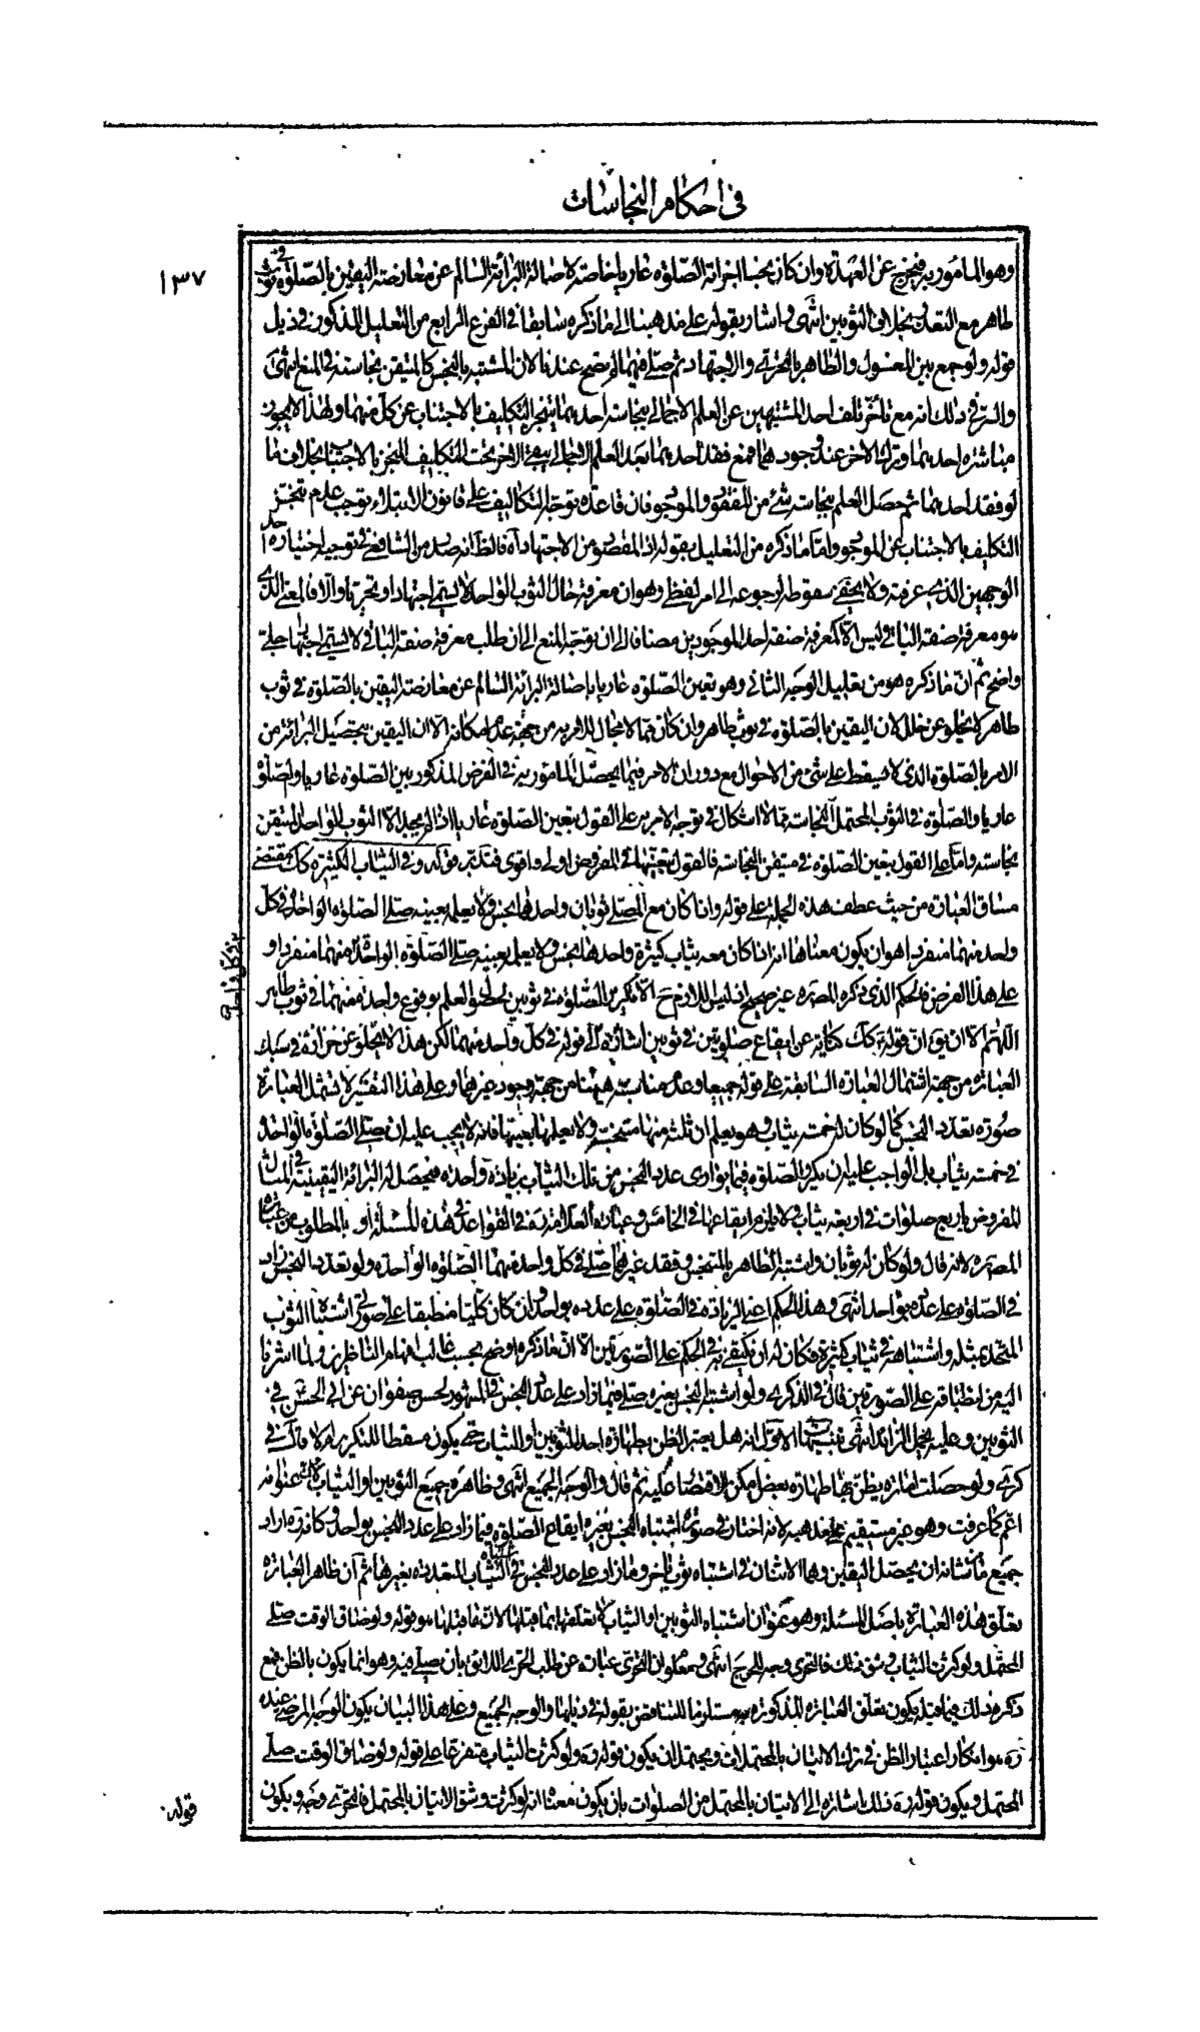 في احكام النجاسات
١٣٧
وهو المأمور به فيخرج عن العهدة وان كان يجب اجزائه الصلوة عاريا خاصة لاصالة البرائة السالم عن معارضة اليقين بالصلوة في ثوب
طاهر مع التعدد بخلاف الثوبين انتهى واشار بقوله على مذهبنا الى ما ذكره سابقا في الفرع الرابع من التعليل المذكور في ذيل
قوله ولو جمع بين المغسول والطاهر بالتحري والاجتهاد ثم صلى فيهما لم يصح عندنا لان المشتبه بالنجس كالمتيقن نجاسته في المنع انتهى
والسر في ذلك انه مع تأخر تلف احد المشتبهين عن العلم الاجمالي بنجاسة احدهما يتنجز التكليف بالاجتناب عن كل منهما ولهذا لا يجوز
مباشرة احدهما وترك الاخر عند وجودهما فمع فقد احدهما بعد العلم الاجمالي يبقى الاخر تحت التكليف المنجز بالاجتناب بخلاف ما
لو فقد احدهما ثم حصل العلم بنجاسة شئ من المفقود والموجود فان قاعدة توجه التكاليف على قانون الابتلاء يوجب عدم تنجز
التكليف بالاجتناب عن الموجود واما ما ذكره من التعليل بقوله اذ المقصود من الاجتهاد آه فالظ انه صدر من الشافعي في توجيه اختياره احد
الوجهين الذي عرفته ولا يخفى سقوطه لرجوعه الى امر لفظي وهو ان معرفة حال الثوب الواحد لا يسمى اجتهادا وتحريا والا فالمعنى الذي
هو معرفة صفة الباقي ليس الا كمعرفة صفة احد الموجودين مضافا الى ان توجه المنع الى ان طلب معرفة صفة الباقي لا يسمى اجتهادا جلي
واضح ثم ان ما ذكره هو من تعليل الوجه الثاني وهو تعين الصلوة عاريا باصالة البرائة السالم عن معارضة اليقين بالصلوة في ثوب
طاهر لا يخلو عن خلل لان اليقين بالصلوة في ثوب طاهر وان كان مما لا مجال للامر به من جهة عدم امكانه الا ان اليقين بتحصيل البرائة من
الامر بالصلوة الذي لا يسقط على شئ من الاحوال مع دوران الامر فيما يحصل المأمور به في الفرض المذكور بين الصلوة عاريا والصلوة
عاريا والصلوة في الثوب المحتمل النجاسة مما لا اشكال في توجه الامر به على القول بتعين الصلوة عاريا اذا لم يجد الا الثوب الواحد المتيقن
نجاسته واما على القول بتعين الصلوة في متيقن النجاسة فالقول بتعينها في المفروض اولى واقوى فتدبر قوله وفي الثياب الكثيرة كك مقتضى
مساق العبارة من حيث عطف هذه الجملة على قوله واذا كان مع المصلي ثوبان واحدهما نجس ولا يعلمه بعينه صلى الصلوة الواحدة في كل
واحد منهما منفردا هو ان يكون معناها انه اذا كان معه ثياب كثيرة واحدها نجس ولا يعلم بعينه صلى الصلوة الواحدة منهما منفردا و
في كل واحد
على هذا الفرض فالحكم الذي ذكره المص ره غير صحيح اذ ليس اللازم ح الا تكرير الصلوة في ثوبين لحصول العلم بوقوع واحدة منهما في ثوب طاهر
اللهم الا ان يق ان قوله كك كناية عن ايقاع صلوتين في ثوبين اشارة الى قوله في كل واحد منهما لكن هذا لا يخلو عن حزازة في سبك
العبارة من جهة اشتمال العبارة السابقة على قوله جميعا وعدم مناسبته هيهنا من جهة وجود غيرهما وعلى هذا التفسير لا تشمل العبارة
صورة تعدد النجس كما لو كان له خمسة ثياب وهو يعلم ان ثلثة منها متنجس ولا يعلمها بعينها فانه لا يجب عليه ان يصلي الصلوة الواحدة
في خمسة ثياب بل الواجب عليه ان يكرر الصلوة فيما يوازي عدد النجس من تلك الثياب بزيادة واحدة فيحصل له البرائة اليقينية في المثال
المفروض باربع صلوات في اربعة ثياب ولا يلزم ايقاعها في الخامس وعبارة العلامة ره في القواعد في هذه المسئلة او في بالمطلوب من عبارة
المص ره لانه قال ولو كان له ثوبان واشتبه الطاهر بالمتنجس وفقد غيرهما صلى في كل واحد منهما الصلوة الواحدة ولو تعدد النجس زاد
في الصلوة على عدده بواحد انتهى وهذا الحكم اعني الزيادة في الصلوة على عدده بواحد وان كان كليا منطبقا على صورتي اشتباه الثوب
المتحد بمثله واشتباهه في ثياب كثيرة فكان له ان يكتفي به في الحكم على الصورتين الا ان ما ذكره اوضح بحسب غالب افهام الناظرين ولما اشرنا
اليه من انطباقه على الصورتين قال في الذكرى ولو اشتبه النجس بغيره صلى فيما زاد على عدد النجس في المشهور لحسن صفوان عن ابي الحسن في
الثوبين وعليه يحمل الزائد انتهى تنبيهات الاول انه هل يعتبر الظن بطهارة احد الثوبين او الثياب حتى يكون مسقطا للتكرير ام لا قال في
كرى ولو حصلت امارة يظن بها طهارة بعض امكن الاقتصار عليه ثم قال والوجه الجميع انتهى وظاهره جميع الثوبين او الثياب لان عنوانه
اعم كما عرفت وهو غير مستقيم على مذهبه لانه اختار في صورة اشتباه النجس بغيره ايقاع الصلوة فيما زاد على عدد النجس بواحد وكانه ره اراد
جميع ما من شانه ان يحصل اليقين وهما الاثنان في اشتباه ثوب باخر وما زاد على عدد النجس في اشتباه الثياب المتعددة بغيرها ثم ان ظاهر العبارة
تعلق هذه العبارة باصل المسئلة وهو عنوان اشتباه الثوبين او الثياب لا تعلقها بما قبلها لان ما قبلها هو قوله ولو ضاق الوقت صلى
المحتمل ولو كثرت الثياب وشق ذلك فالتحري وجه للحرج انتهى ومعلوم ان التحري عبارة عن طلب الحري اللائق بان يصلي فيه وهو انما يكون بالظن فمع
ذكره ذلك فيما قبله يكون تعلق العبارة المذكورة به مستلزما للتناقض بقوله في ذيلها والوجه الجميع وعلى هذا البيان يكون الوجه المرضي عنده
ره هو انكار اعتبار الظن في ترك الاتيان بالمحتملات ويحتمل ان يكون قوله ره ولو كثرت الثياب متفرعا على قوله ولو ضاق الوقت صلى
المحتمل ويكون قوله ره ذلك اشارة الى الاتيان بالمحتمل من الصلوات بان يكون معناه انه لو كثرت وشق الاتيان بالمحتمل فالتحري وجه ويكون
قوله